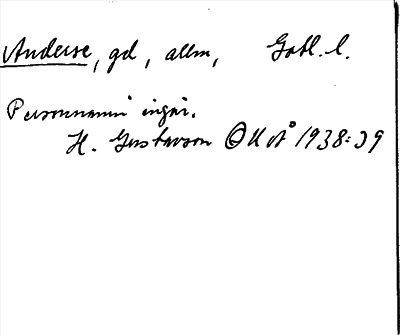 Anderse, gd, allm, Gotl. l.
Personnamn ingår.
H. Gustavson OKvÅ 1938:39